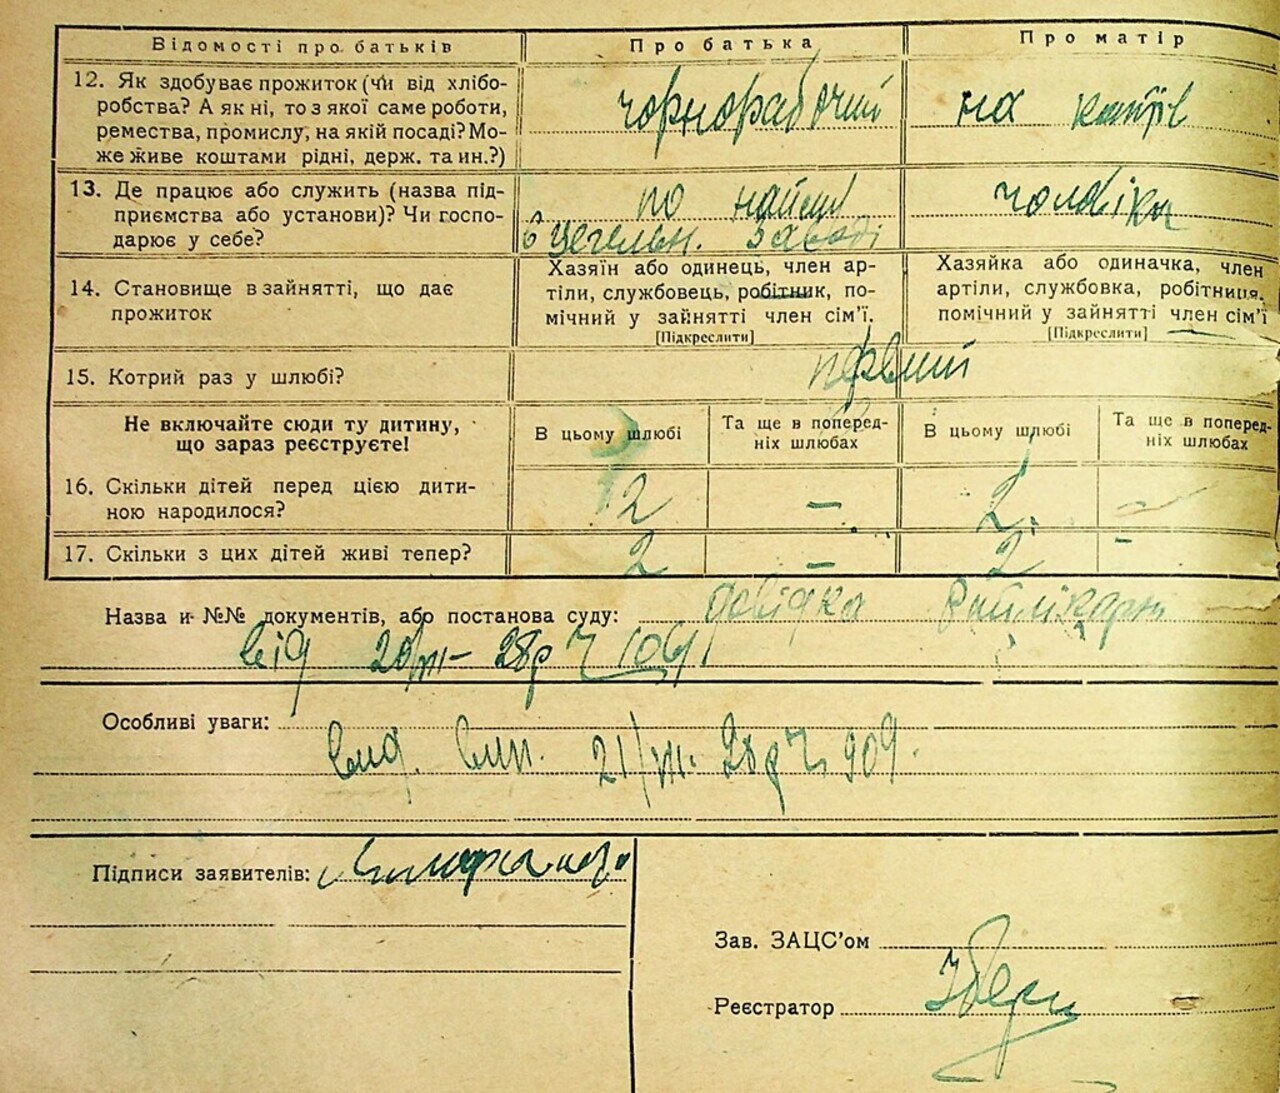 Відомості про батьків
Про батька
Про матір
12. Як здобуває прожиток (чи від хлібо-
робства? А як ні, то з якої саме роботи,
ремества, промислу, на якій посаді? Мо-
же живе коштами рідні, держ. та ин.?)
чорнорабочий
на коштів
13. Де працює або служить (назва під-
приємства або установи)? Чи госпо-
дарює у себе?
по найму
в цегельн. заводі
чоловіка
14. Становище в зайнятті, що дає
прожиток
Хазяїн або одинець, член ар-
тіли, службовець, робітник, по-
мічний у зайнятті член сім’ї.
[Підкреслити]
Хазяйка або одиначка, член
артіли, службовка, робітниця,
помічний у зайнятті член сім’ї
[Підкреслити]
15. Котрий раз у шлюбі?
первий
Не включайте сюди ту дитину,
що зараз реєструєте!
В цьому шлюбі
Та ще в поперед-
ніх шлюбах
В цьому шлюбі
Та ще в поперед-
ніх шлюбах
16. Скільки дітей перед цією дити-
ною народилося?
2
–
2
–
17. Скільки з цих дітей живі тепер?
2
–
2
–
Назва и №№ документів, або постанова суду:
довідка
від 20/III- 28р Ч 1061
Особливі уваги:
вид. вип. 21/III. 28р Ч 909.
Підписи заявителів:
Зав. ЗАЦС’ом
Реєстратор